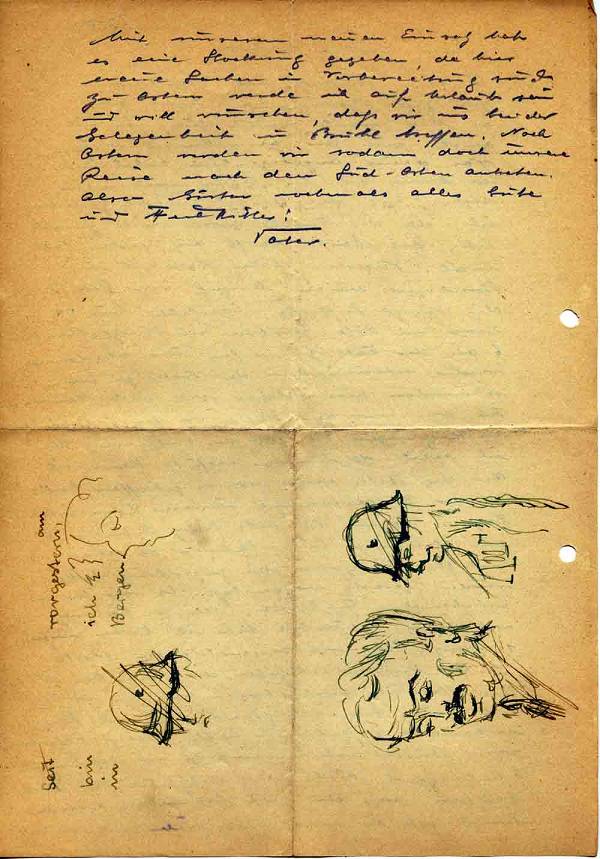 Mit unserem neuen Einsatz hat
es eine Stockung gegeben, da hier
neue Sachen in Vorbereitung sind.
Zu Ostern werde ich auf Urlaub sein
und will wünschen, dass wir uns bei der
Gelegenheit in Brühl treffen. Nach
Ostern werden wir sodann doch unsere
Reise nach dem Süd-Osten antreten.
Also nochmals alles Gute
und
Vater.
seit vorgestern, am
bin ich
in Bergen